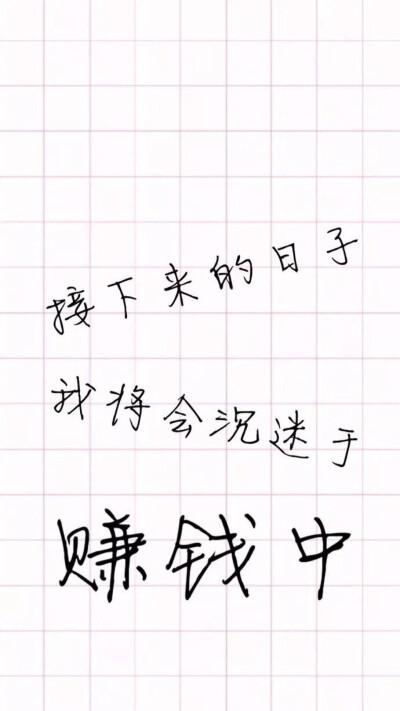 接下来的日子
我将会沉迷于
赚钱中